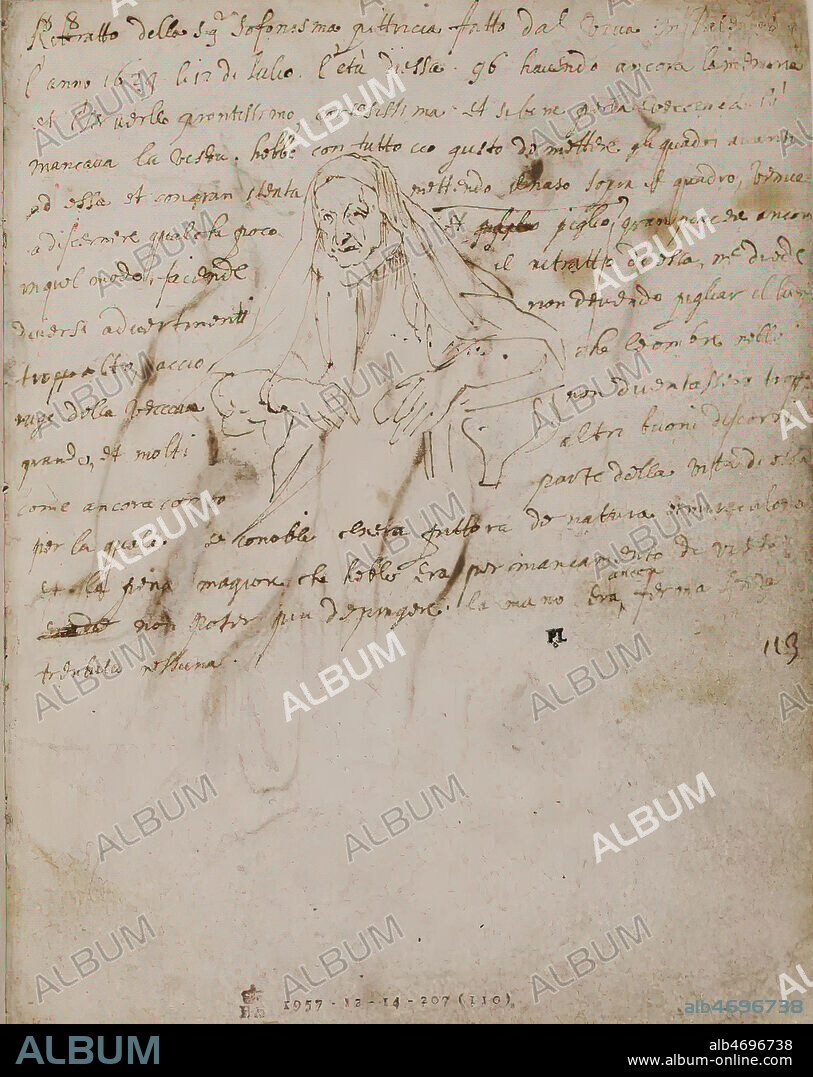 Rittratto della Sigra Sofonisma pittricia fatto dal vivo in Palermo
l'anno 1629 li 12 di Julio. l'età di essa 96 havendo ancora la memoria
et prontissimo cortesissima et se bene per la vecciaia li
mancava la vista. hebbe con tutto cio gusto de mettere gli quadri avanti
ad essa et con gran stenta mettendo il naso sopra il quadro, venne
a discernere qualche poco piglio gran piacere ancora
in quel modo. facendo il ritratto di essa, me diede
diversi advertimenti non devendo pigliar il lume
troppo alto, accio che le ombre nelle
ruge della vecciaia non diventassero troppo
grande, et molti altri buoni discorsi
come ancora conto parte della vita di essa
per la quale se conobbe chera pittora de natura et miraculosa
et la pena magiore che hebbe era per mancamento di vista
non poter piu dipingere. la mano era ancora ferma senza
tremula nessuna.
PL
113
1957-12-14-207 (110)
ALBUM
alb4696738
ALBUM
alb4696738
www.album-online.com